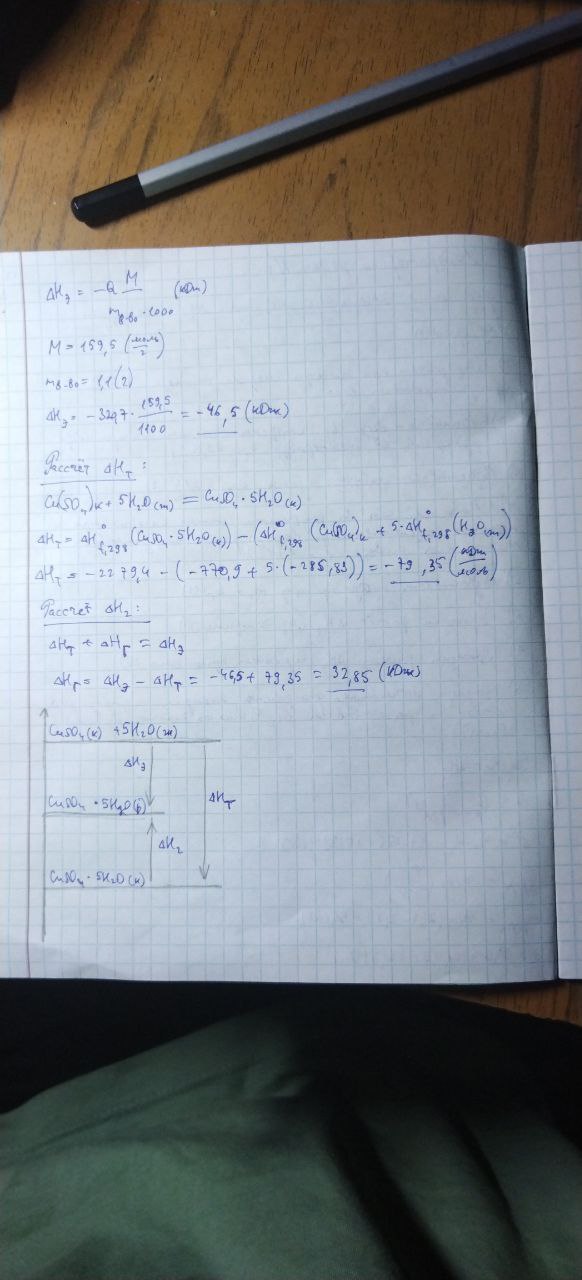 ΔHэ = -Q M/(mв-ва · 1000) (кДж)
M = 159,5 (моль/г)
mв-ва = 1,1 (г)
ΔHэ = -320,7 · 159,5/1100 = -46,5 (кДж)
Рассчёт ΔHт:
Cu(SO₄)к + 5H₂O(ж) = CuSO₄ · 5H₂O(к)
ΔHт = ΔH°f,298 (CuSO₄ · 5H₂O(к)) - (ΔH°f,298 (CuSO₄)к + 5·ΔH°f,298 (H₂O(ж))
ΔHт = -2279,4 - (-770,9 + 5·(-285,83)) = -79,35 (кДж/моль)
Рассчёт ΔH₂:
ΔHт + ΔHг = ΔHэ
ΔHг = ΔHэ - ΔHт = -46,5 + 79,35 = 32,85 (кДж)
CuSO₄(к) + 5H₂O(ж)
ΔHэ
CuSO₄ · 5H₂O(р) ΔHт
ΔH₂
CuSO₄ · 5H₂O(к)